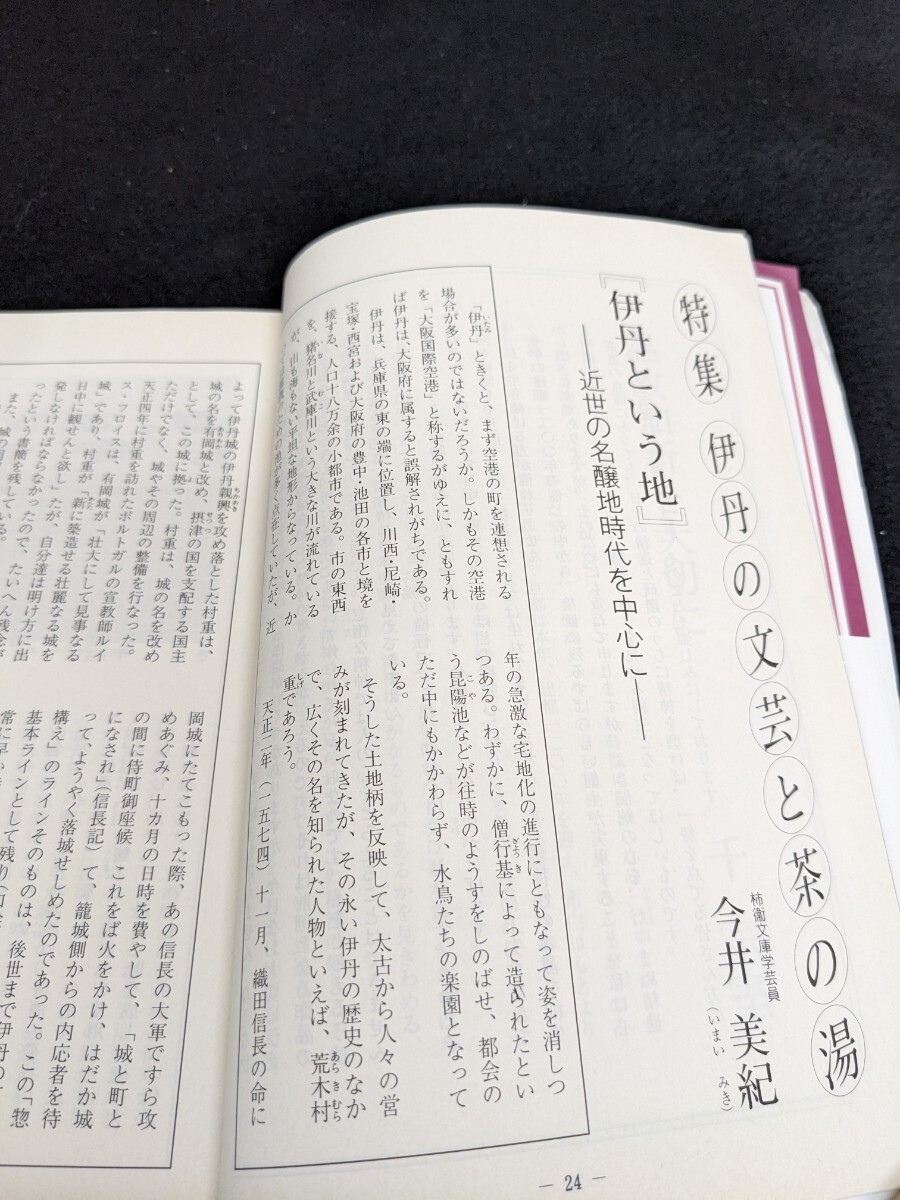 特集 伊丹の文芸と茶の湯
『伊丹という地』
――近世の名醸地時代を中心に――
柿衞文庫学芸員
今井 美紀
(いまい みき)
「伊丹」ときくと、まず空港の町を連想される
場合が多いのではないだろうか。しかもその空港
を「大阪国際空港」と称するがゆえに、ともすれ
ば伊丹は、大阪府に属すると誤解されがちである。
伊丹は、兵庫県の東の端に位置し、川西・尼崎・
宝塚・西宮および大阪府の豊中・池田の各市と境を
接する、人口十八万余の小都市である。市の東西
を、猪名川と武庫川という大きな川が流れている
が、山も海もない平坦な地形からなっている。か
が多く点在していたが、近
年の急激な宅地化の進行にともなって姿を消しつ
つある。わずかに、僧行基によって造られたとい
う昆陽池などが往時のようすをしのばせ、都会の
ただ中にもかかわらず、水鳥たちの楽園となって
いる。
そうした土地柄を反映して、太古から人々の営
みが刻まれてきたが、その永い伊丹の歴史のなか
で、広くその名を知られた人物といえば、荒木村
重であろう。
天正二年(一五七四)十一月、織田信長の命に
― 24 ―
よって伊丹城の伊丹親興を攻め落とした村重は、
城の名を有岡城と改め、摂津の国を支配する国主
として、この城に拠った。村重は、城の名を改め
ただけでなく、城やその周辺の整備を行なった。
天正四年に村重を訪れたポルトガルの宣教師ルイ
ス・フロイスは、有岡城が「壮大にして見事なる
城」であり、村重が「新に築造せる壮麗なる城を
日中に観せんと欲し」たが、自分達は明け方に出
発しなければならなかったので、たいへん残念が
ったという書簡を残している。
また、城の
岡城にたてこもった際、あの信長の大軍ですら攻
めあぐみ、十カ月の日時を費やして、「城と町と
の間に侍町御座候 これをば火をかけ、はだか城
になされ」(信長記)て、籠城側からの内応者を待
って、ようやく落城せしめたのであった。この「惣
構え」のラインそのものは、後世まで伊丹の
基本ラインとして残り
常に早い